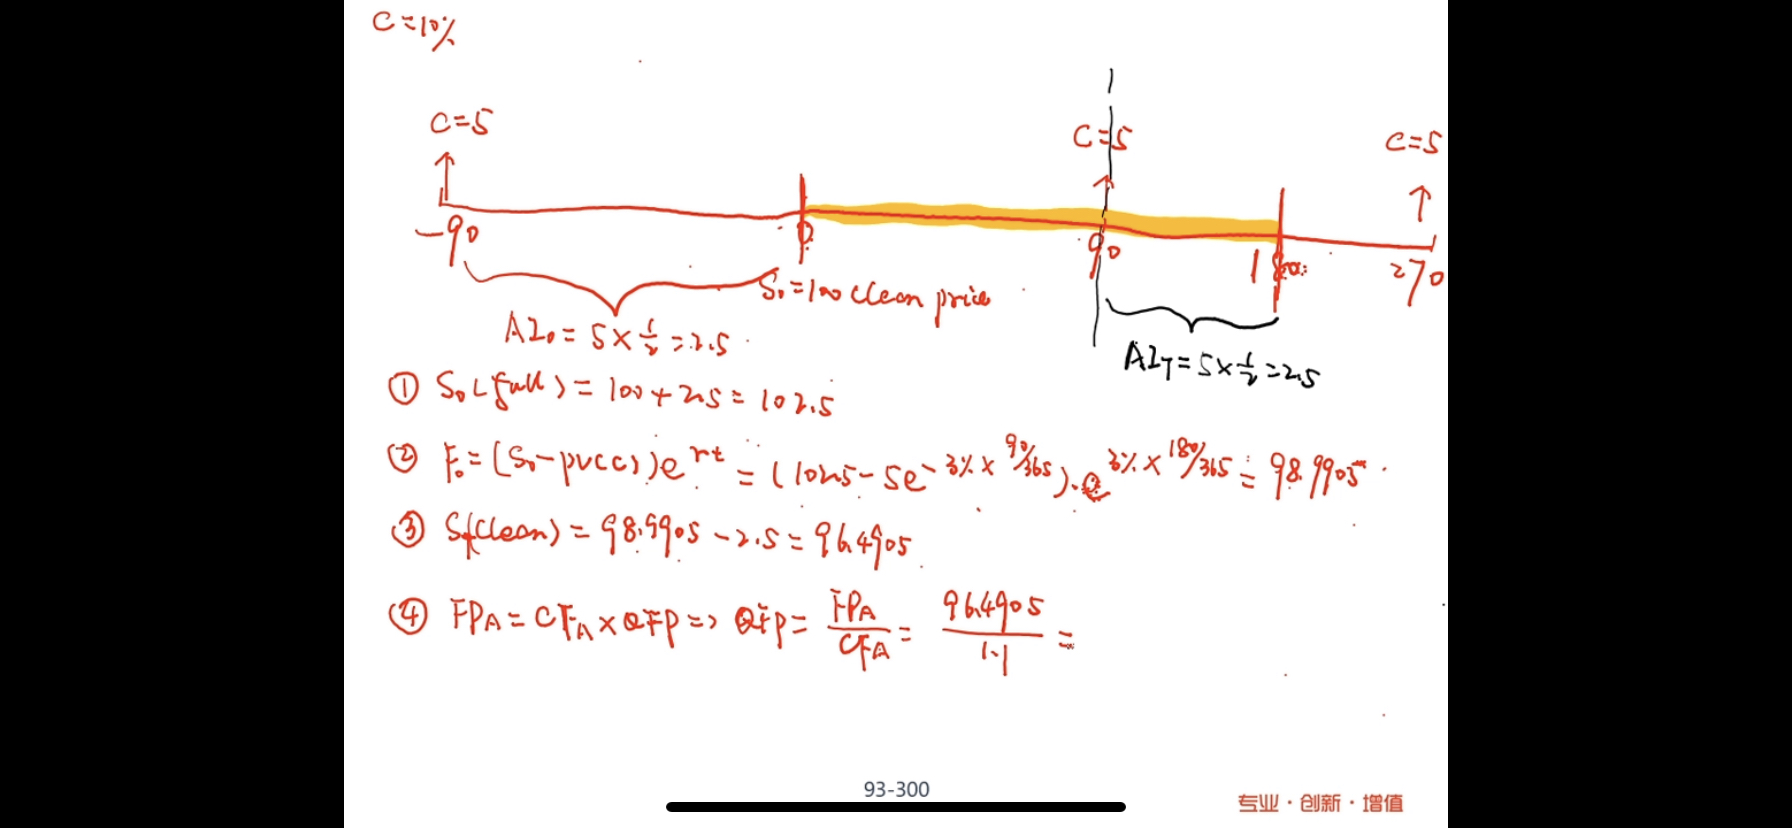 C=10%
C=5
C=5
C=5
-90
0
90
180
270
S₀=100 clean price
AI₀ = 5×1/2 =2.5
AI_T=5×1/2=2.5
① S₀(full)= 100+2.5=102.5
② F₀=(S₀-PV(C))e^rt = (102.5-5e^-3%×90/365).e^3%×180/365 = 98.9905
③ S_T(Clean)=98.9905-2.5=96.4905
④ FP_A=CF_A×QFP=> QFP= FP_A/CF_A = 96.4905/1.1 =
93-300
专业·创新·增值